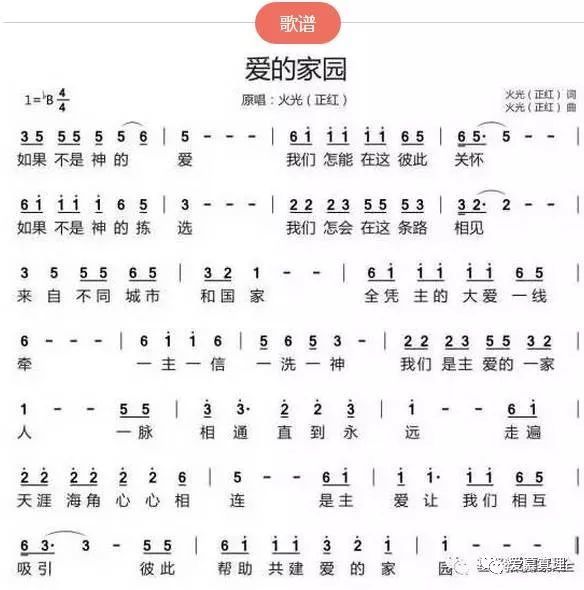 歌谱
爱的家园
1=♭B 4/4
原唱：火光（正红）
火光（正红）词
火光（正红）曲
3 5 5 5 5 5 6 | 5 - - - | 6 1 1 1 5 5 6 1 | 6 5· 5 - -
如果 不是 神的 爱 我们 怎能 在这 彼此 关怀
6 1 1 1 1 6 5 | 3 - - - | 2 2 2 3 5 5 2 3 | 3 2· 2 - -
如果 不是 神的 拣 选 我们 怎会 在这 条路 相见
3 5 5 5 6 5 | 3 2 1 - - | 1 1 1 1 1 1 6 5 |
来 自 不同 城市 和国 家 全凭 主的 大爱 一线
6 - - - | 6 1 6 1 6 5 6 1 | 2 2 2 2 2 2 3 2 |
牵 一主一信 一洗一神 我们 是主 爱的 一家
1 - - 5 5 | 3 3· 2 2 3 | 2 - - 6 1 |
人 一脉 相 通 直到 永 远 走遍
2 2 2 2 2 2 1 | 5 - - 6 1 | 1 1· 1 1 6 5 |
天涯 海角 心心 相 连 是主 爱 让 我们 相互
6 3· 3 - 5 5 | 6 1 1 6 5 6 1 |
吸引 彼此 帮助 共建 爱 的 家 园